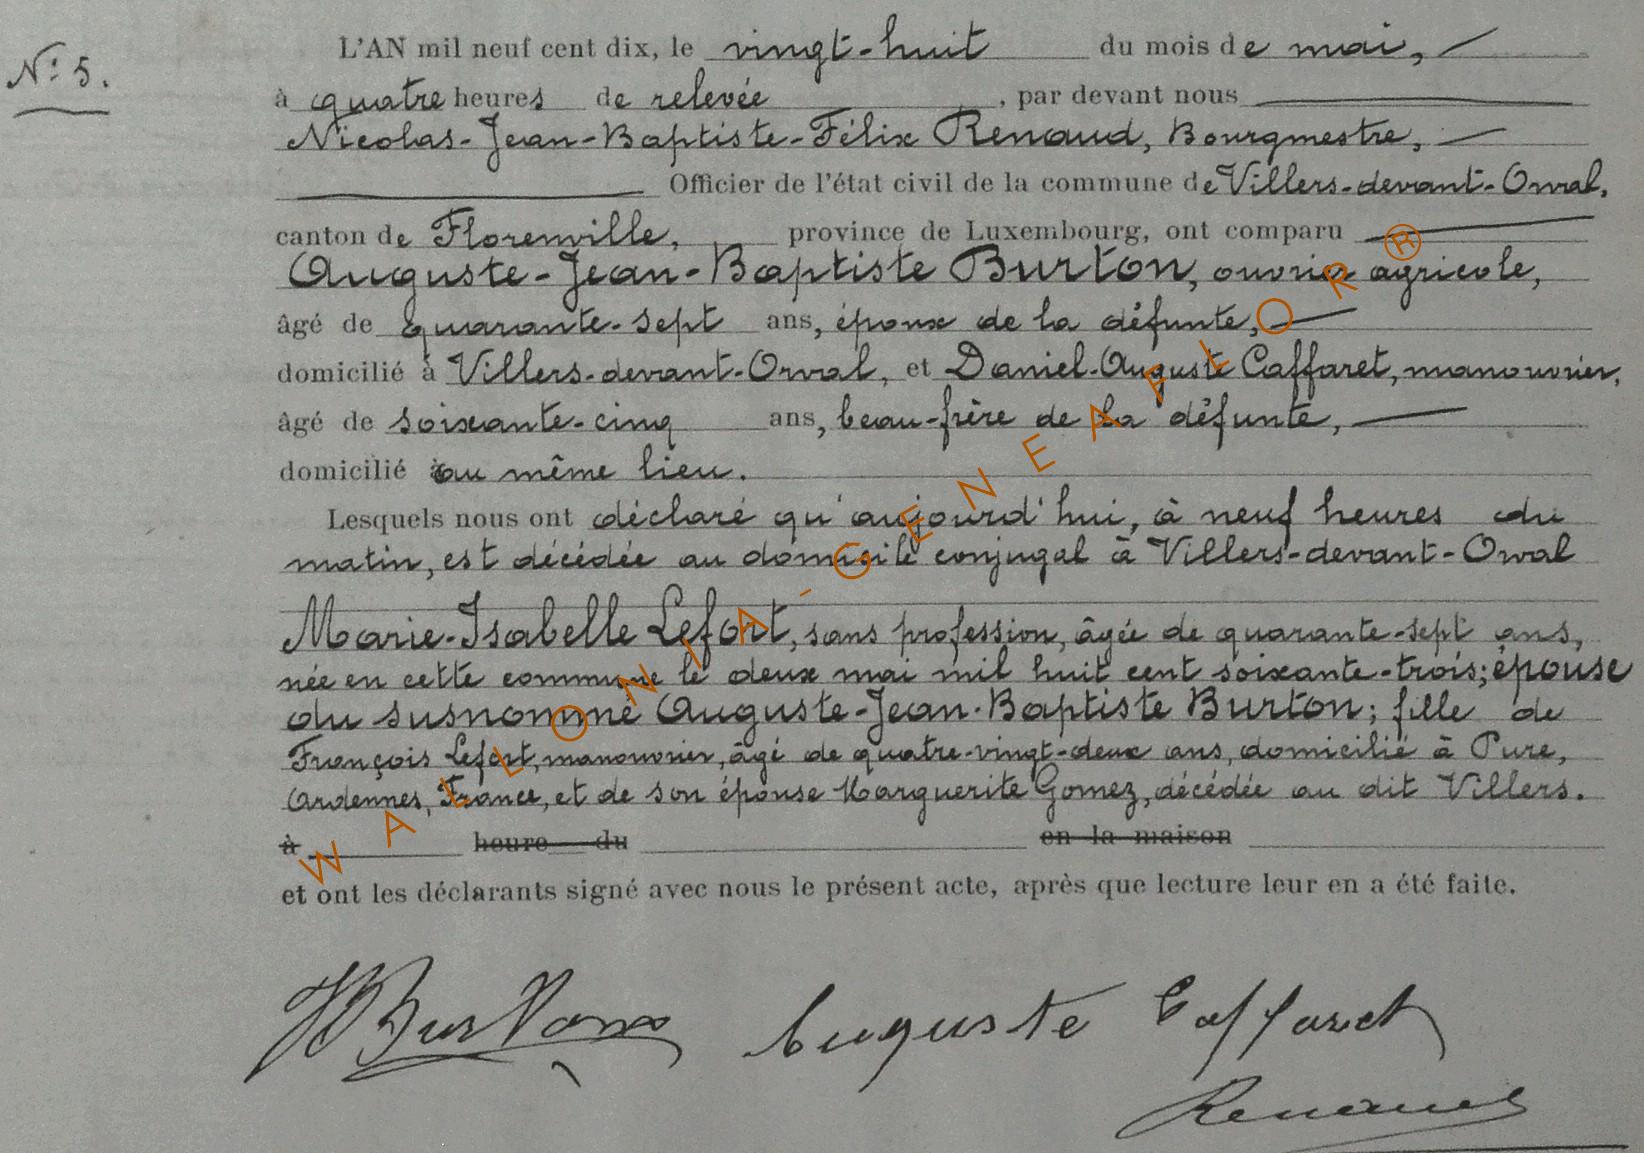 N° 5.
L'AN mil neuf cent dix, le vingt-huit du mois de mai,
à quatre heures de relevée, par devant nous
Nicolas-Jean-Baptiste-Félix Renaud, Bourgmestre,
Officier de l'état civil de la commune de Villers-devant-Orval,
canton de Florenville, province de Luxembourg, ont comparu
Auguste-Jean-Baptiste Burton, ouvrier agricole,
âgé de quarante-sept ans, époux de la défunte,
domicilié à Villers-devant-Orval, et Daniel-Auguste Caffaret, manouvrier,
âgé de soixante-cinq ans, beau-frère de la défunte,
domicilié au même lieu.
Lesquels nous ont déclaré qu'aujourd'hui, à neuf heures du
matin, est décédée au domicile conjugal à Villers-devant-Orval
Marie-Isabelle Lefort, sans profession, âgée de quarante-sept ans,
née en cette commune le deux mai mil huit cent soixante-trois; épouse
du susnommé Auguste-Jean-Baptiste Burton; fille de
François Lefort, manouvrier, âgé de quatre-vingt-deux ans, domicilié à Pure,
Ardennes, France, et de son épouse Marguerite Gomez, décédée au dit Villers.
à heure du en la maison
et ont les déclarants signé avec nous le présent acte, après que lecture leur en a été faite.
Burton Auguste Caffaret
Renaud
WALLONIA-GENEAFLOR®